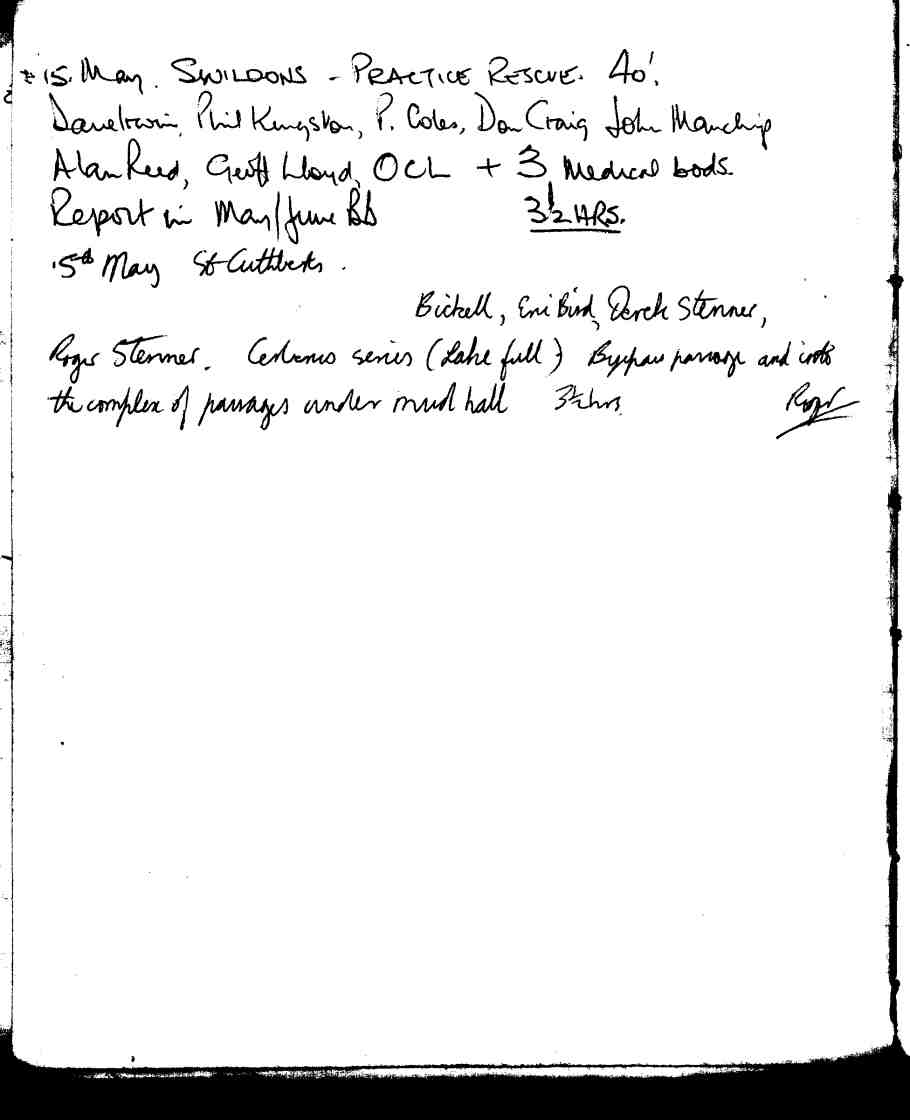 15. May. SWILDONS - PRACTICE RESCUE. 40'.
Dave Irwin, Phil Kingston, P. Coles, Don Craig John Manchip
Alan Reed, Geoff Lloyd, OCL + 3 Medical bods.
Report in May/June BB 3½ HRS.
15th May St Cuthberts.
Bickell, Eric Bird, Derek Stenner,
Roger Stenner. Cerberus series (Lake full) Bypass passage and into
the complex of passages under mud hall 3½ hrs.
Roger